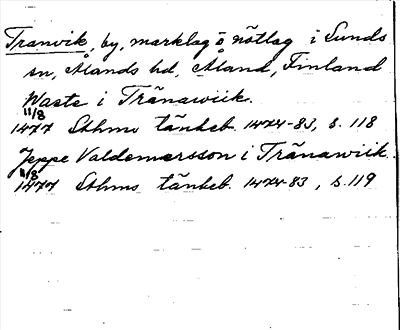 Tranvik, by, marklag o nötlag i Sunds
sn, Ålands hd, Åland, Finland
Waste i Tränawiik.
11/8
1477 Sthms tänkeb. 1474-83, s. 118
Jeppe Valdemarsson i Tränawiik.
11/8
1477 Sthms tänkeb. 1474-83, s. 119